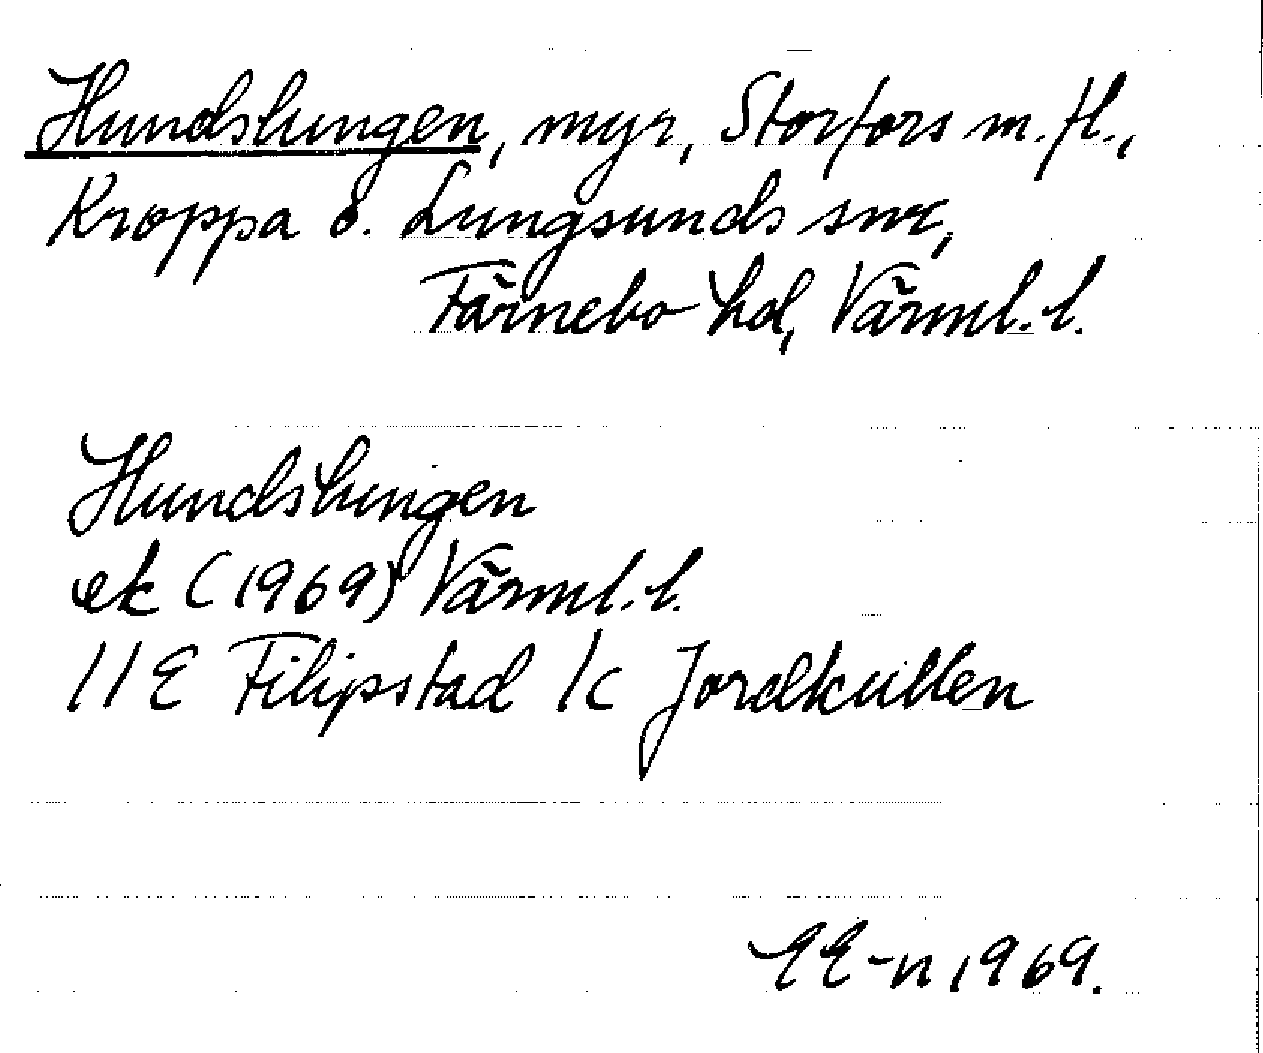 Hundslungen, myr, Storfors m.fl.,
Kroppa o. Lungsunds snr,
Färnebo hd, Värml. l.
Hundslungen
ek (1969) Värml. l.
11E Filipstad 1c Jordkullen
EE-n 1969.